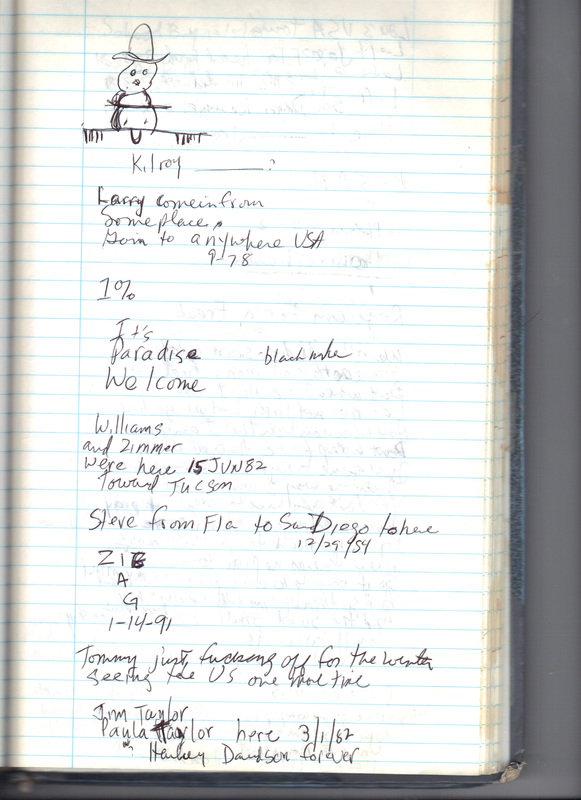 Kilroy ________?
Larry comeinfrom
Someplace,
Goin to anywhere USA
9-78
1%
It's
Paradise
Welcome
Williams
and Zimmer
Were here 15 JUN 82
Toward Tucson
Steve from Fla to San Diego to here
12/29/54
ZIG
A
G
1-14-91
Tommy just fucking off for the winter
Seeing the US one more time
Jim Taylor
Paula Taylor here 3/1/82
Harley Davidson forever